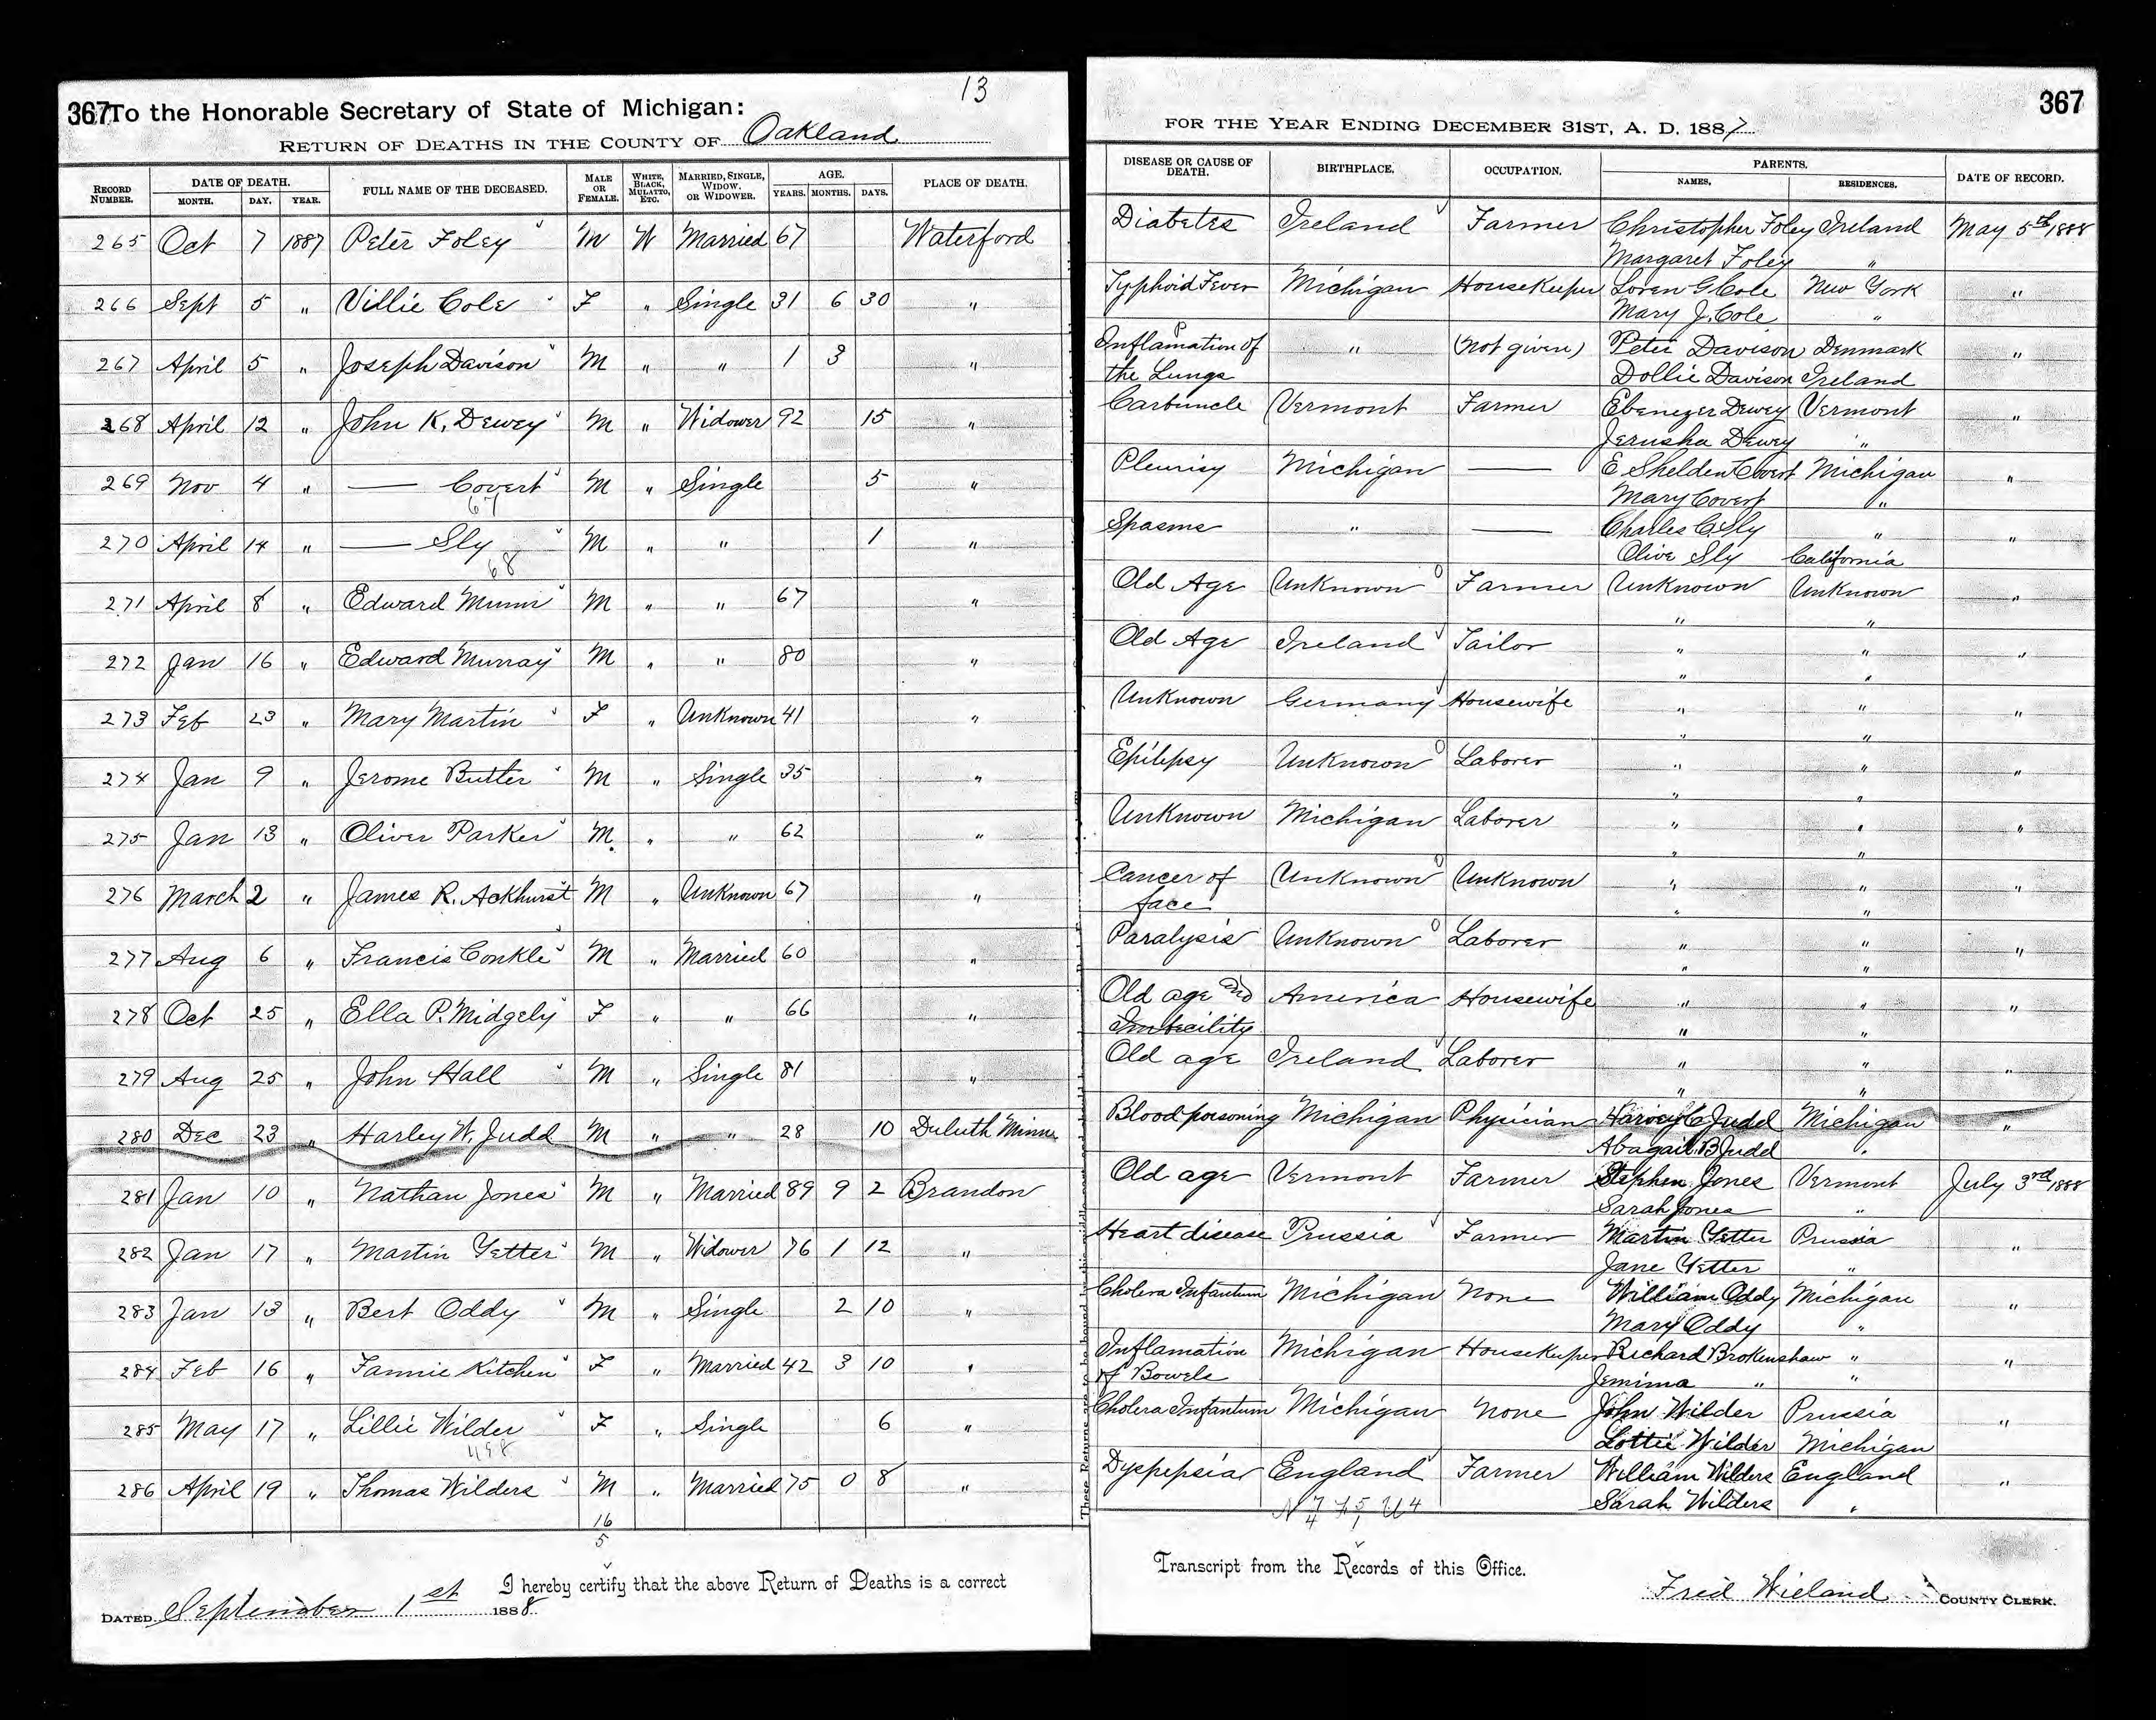 13
367 To the Honorable Secretary of State of Michigan:
RETURN OF DEATHS IN THE COUNTY OF Oakland
FOR THE YEAR ENDING DECEMBER 31ST, A. D. 1887
367
RECORD NUMBER. DATE OF DEATH. MONTH. DAY. YEAR. FULL NAME OF THE DECEASED. MALE OR FEMALE. WHITE, BLACK, MULATTO, ETC. MARRIED, SINGLE, WIDOW, OR WIDOWER. AGE. YEARS. MONTHS. DAYS. PLACE OF DEATH. DISEASE OR CAUSE OF DEATH. BIRTHPLACE. OCCUPATION. PARENTS. NAMES. RESIDENCES. DATE OF RECORD.
265 Oct 7 1887 Peter Foley M W Married 67 Waterford Diabetes Ireland Farmer Christopher Foley Ireland May 5th 1888
Margaret Foley "
266 Sept 5 " Villie Cole F " Single 31 6 30 " Typhoid Fever Michigan HouseKeeper Loren G Cole New York "
Mary J. Cole "
267 April 5 " Joseph Davison M " " 1 3 " Inflamation of " (not given) Peter Davison Denmark "
the Lungs Dollie Davison Ireland
268 April 12 " John K. Dewey M " Widower 92 15 " Carbuncle Vermont Farmer Ebenezer Dewey Vermont "
Jerusha Dewey "
269 Nov 4 " — Covert M " Single 5 " Pleurisy Michigan — E Shelden Covert Michigan "
67 Mary Covert "
270 April 14 " — Sly M " " 1 " Spasms " — Charles C Sly " "
68 Olive Sly California
271 April 8 " Edward Munn M " " 67 " Old Age Unknown Farmer Unknown Unknown "
" "
272 Jan 16 " Edward Murray M " " 80 " Old Age Ireland Tailor " " "
" "
273 Feb 23 " Mary Martin F " Unknown 41 " Unknown Germany Housewife " " "
" "
274 Jan 9 " Jerome Butler M " Single 35 " Epilepsy Unknown Laborer " " "
" "
275 Jan 13 " Oliver Parker M. " " 62 " Unknown Michigan Laborer " " "
" "
276 March 2 " James R. Ackhurst M " Unknown 67 " Cancer of Unknown Unknown " " "
face " "
277 Aug 6 " Francis Conkle M " Married 60 " Paralysis Unknown Laborer " " "
" "
278 Oct 25 " Ella P. Midgely F " " 66 " Old age and America Housewife " " "
Imbecility " "
279 Aug 25 " John Hall M " Single 81 " Old age Ireland Laborer " " "
" "
280 Dec 23 " Harley W. Judd M " " 28 10 Duluth Minn Blood poisoning Michigan Physician Harvey C Judd Michigan "
Abagail B Judd "
281 Jan 10 " Nathan Jones M " Married 89 9 2 Brandon Old age Vermont Farmer Stephen Jones Vermont July 3rd 1888
Sarah Jones "
282 Jan 17 " Martin Yetter M " Widower 76 1 12 " Heart disease Prussia Farmer Martin Yetter Prussia "
Jane Yetter "
283 Jan 13 " Bert Oddy M " Single 2 10 " Cholera Infantum Michigan None William Oddy Michigan "
Mary Oddy "
284 Feb 16 " Fannie Kitchen F " Married 42 3 10 " Inflamation Michigan HouseKeeper Richard Brokenshaw " "
of Bowels Jemima " "
285 May 17 " Lillie Wilder F " Single 6 " Cholera Infantum Michigan None John Wilder Prussia "
498 Lottie Wilder Michigan
286 April 19 " Thomas Wilders M " Married 75 0 8 " Dyspepsia England Farmer William Wilders England "
Sarah Wilders "
16
5
I hereby certify that the above Return of Deaths is a correct Transcript from the Records of this Office.
DATED September 1st 1888.
Fred Wieland COUNTY CLERK.